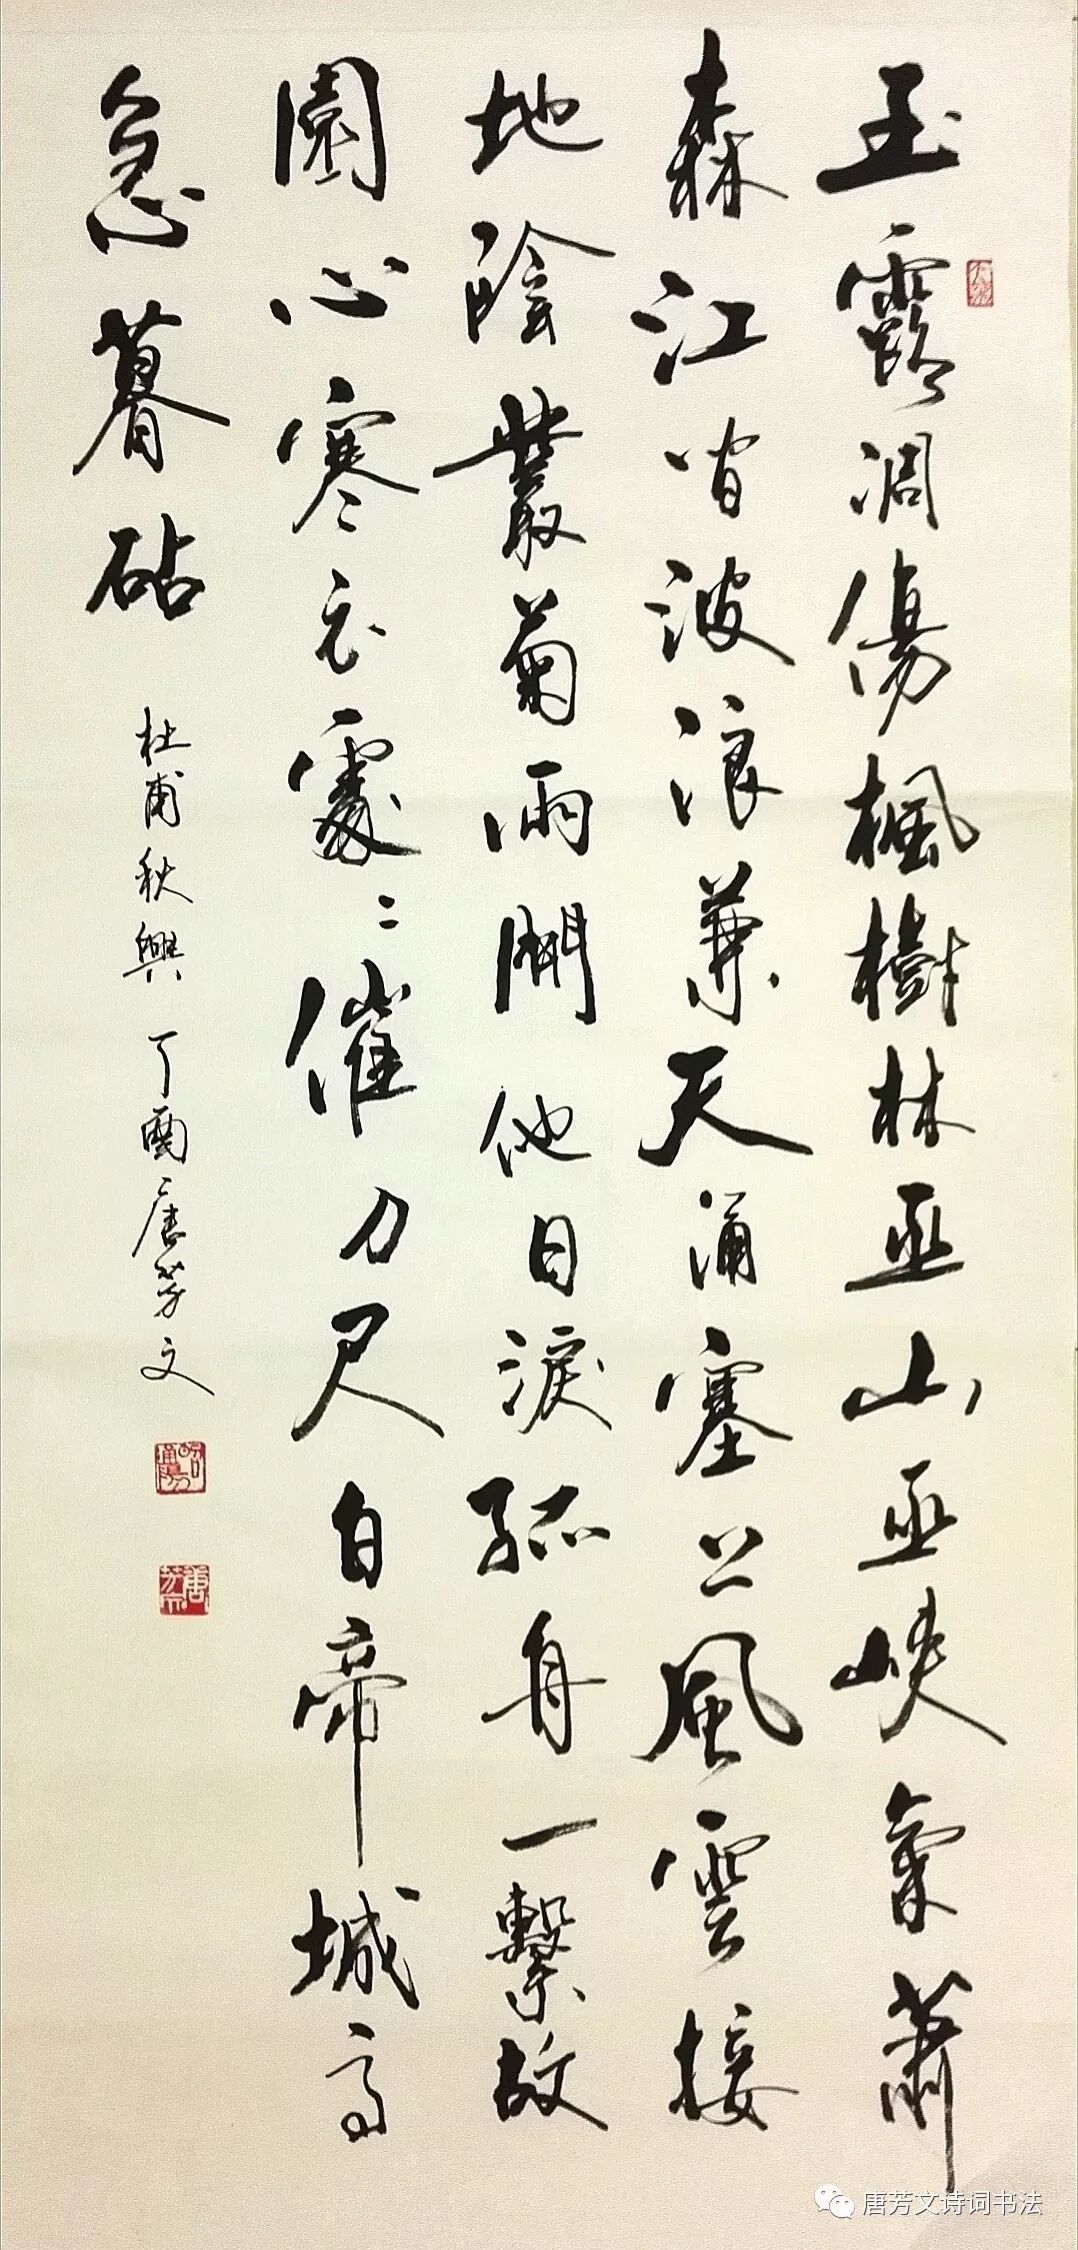 玉露凋傷楓樹林巫山巫峽氣蕭
森江間波浪兼天涌塞上風雲接
地陰叢菊兩開他日淚孤舟一繫故
園心寒衣處〻催刀尺白帝城高
急暮砧
杜甫秋興 丁酉唐芳文
唐芳文诗词书法